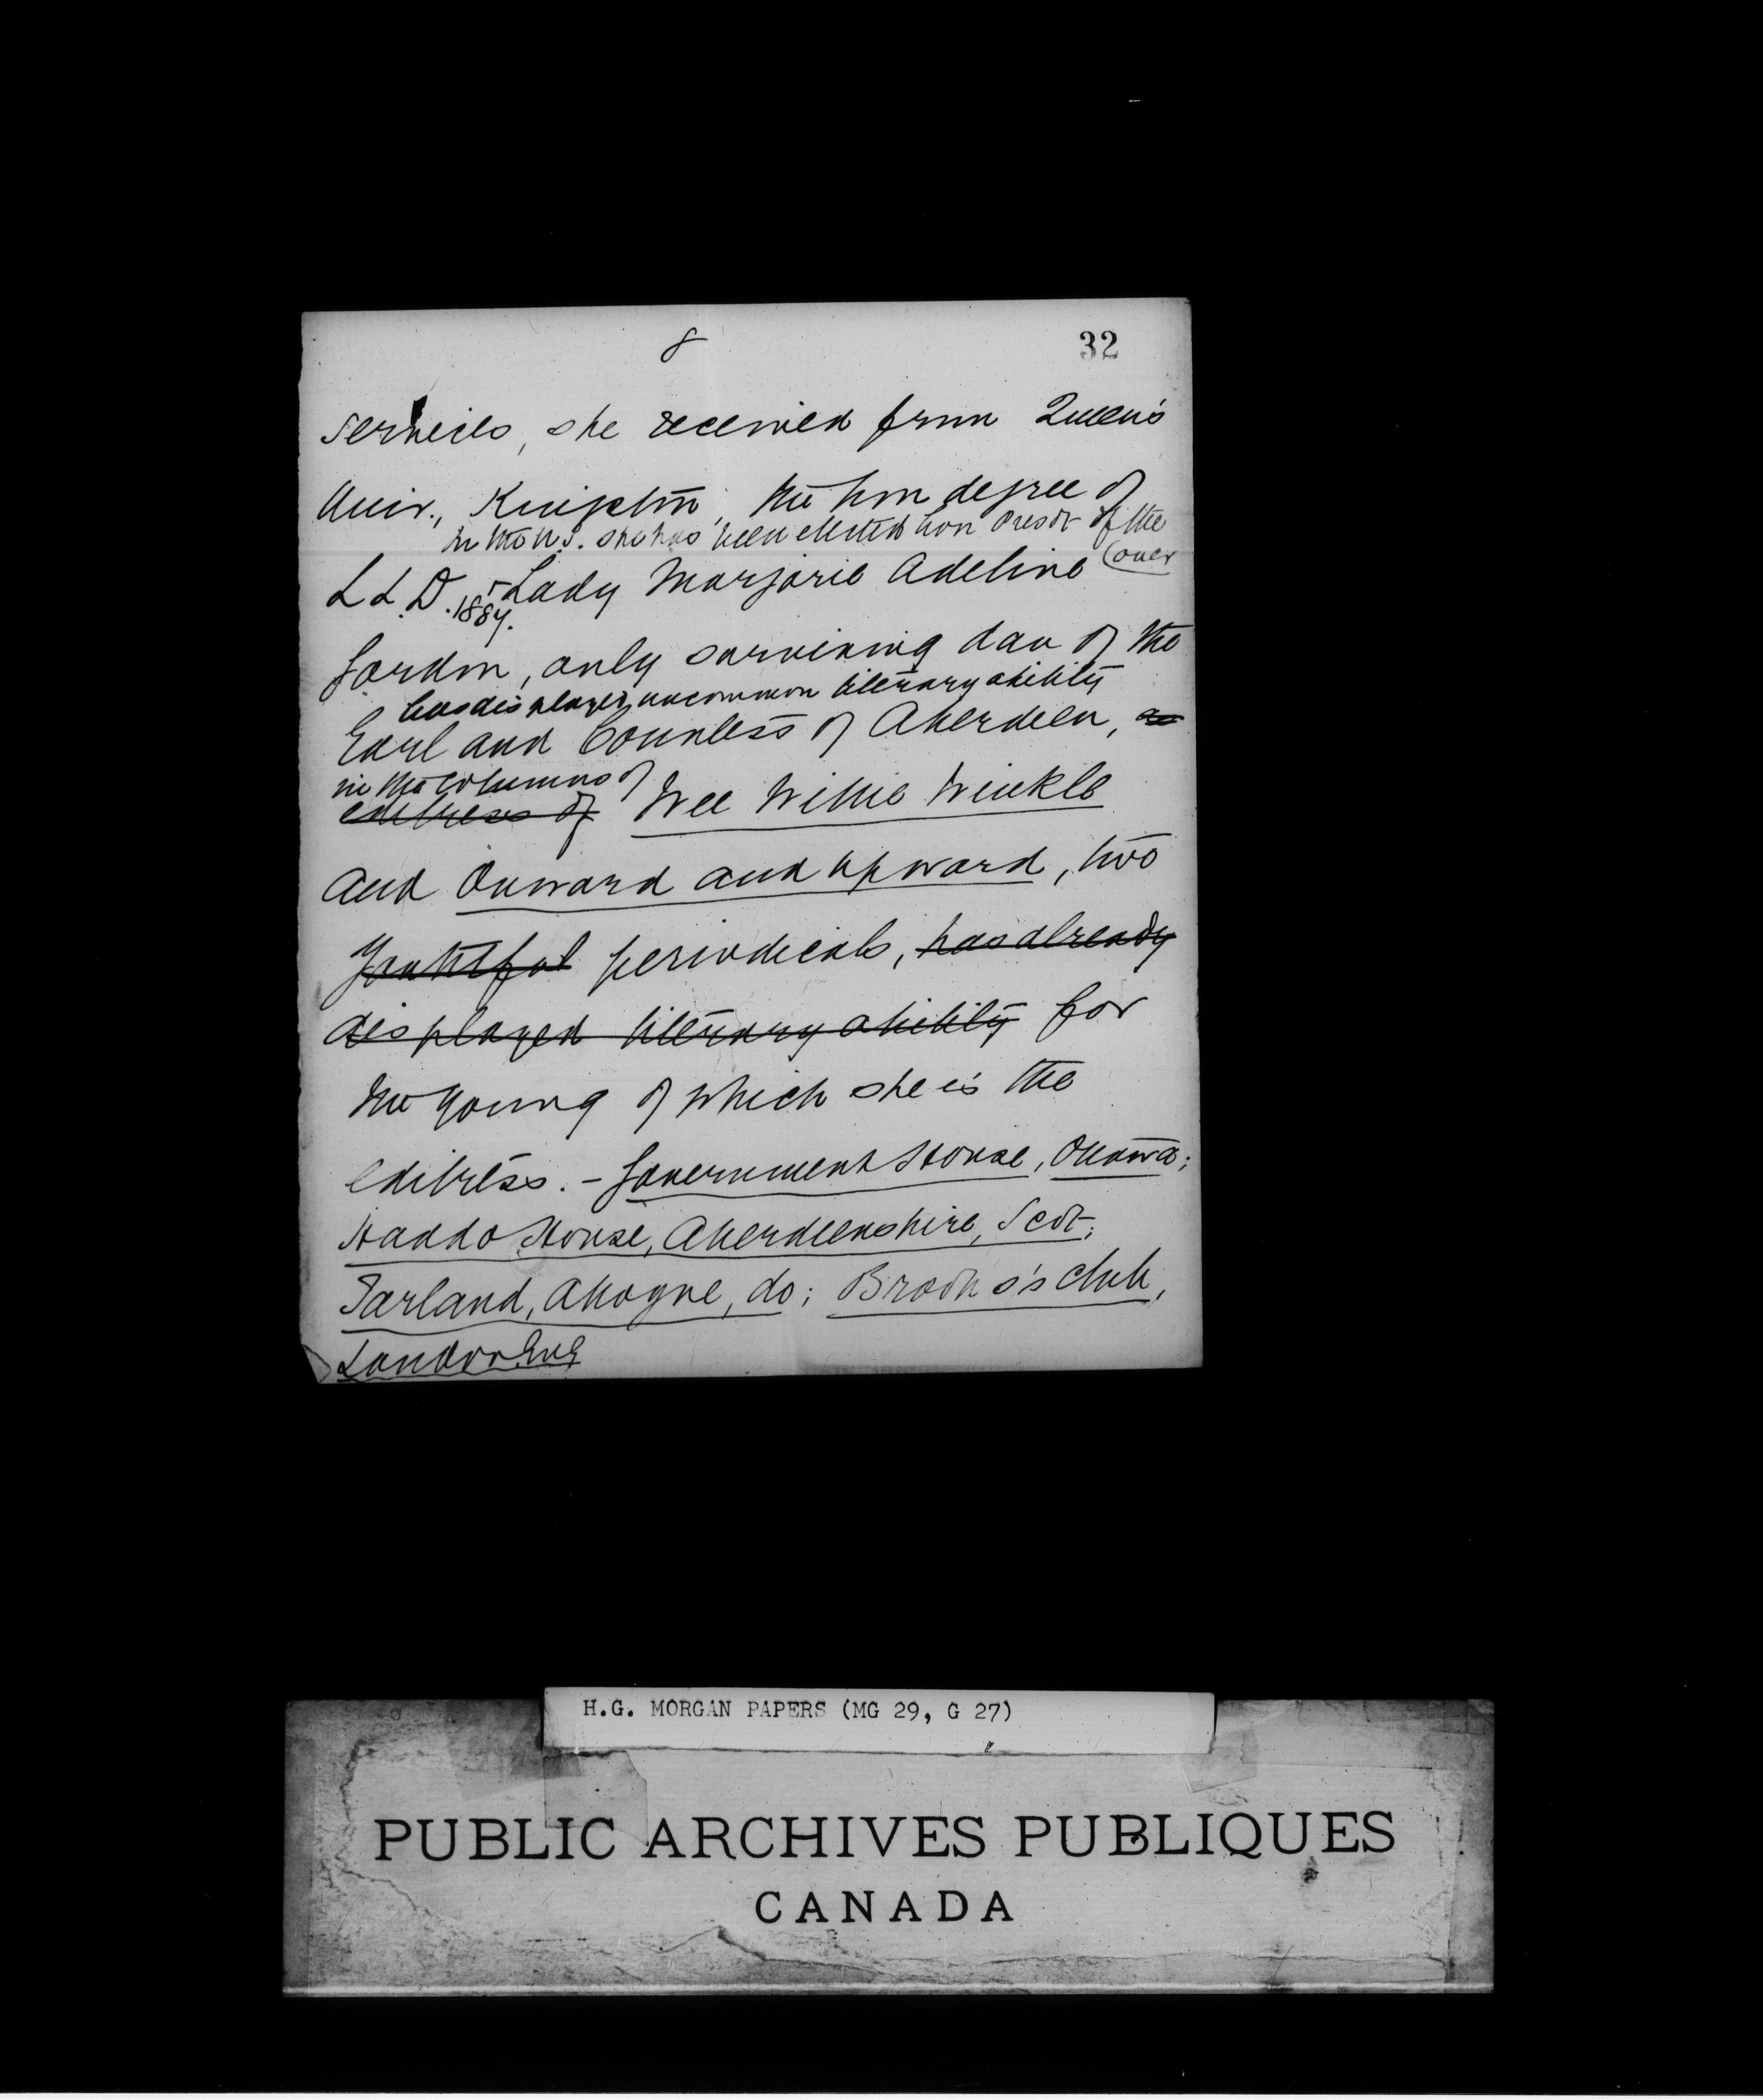 8
32
services, she received from Queen's
Univ., Kingston, the hon degree of
In the U.S. she has been elected hon Presdt of the
(over
LL.D. 1897. - Lady Marjorie Adeline
Gordon, only surviving dau of the
has displayed uncommon literary ability
Earl and Countess of Aberdeen, as
in the columns of
editress of Wee Willie Winkle
and Onward and Upward, two
Youthful periodicals, has already
displayed literary ability for
the young of which she is the
editress. - Government House, Ottawa;
Haddo House, Aberdeenshire, Scot;
Tarland, Aboyne, do; Brooks's Club,
London Eng
H.G. MORGAN PAPERS (MG 29, G 27)
PUBLIC ARCHIVES PUBLIQUES
CANADA